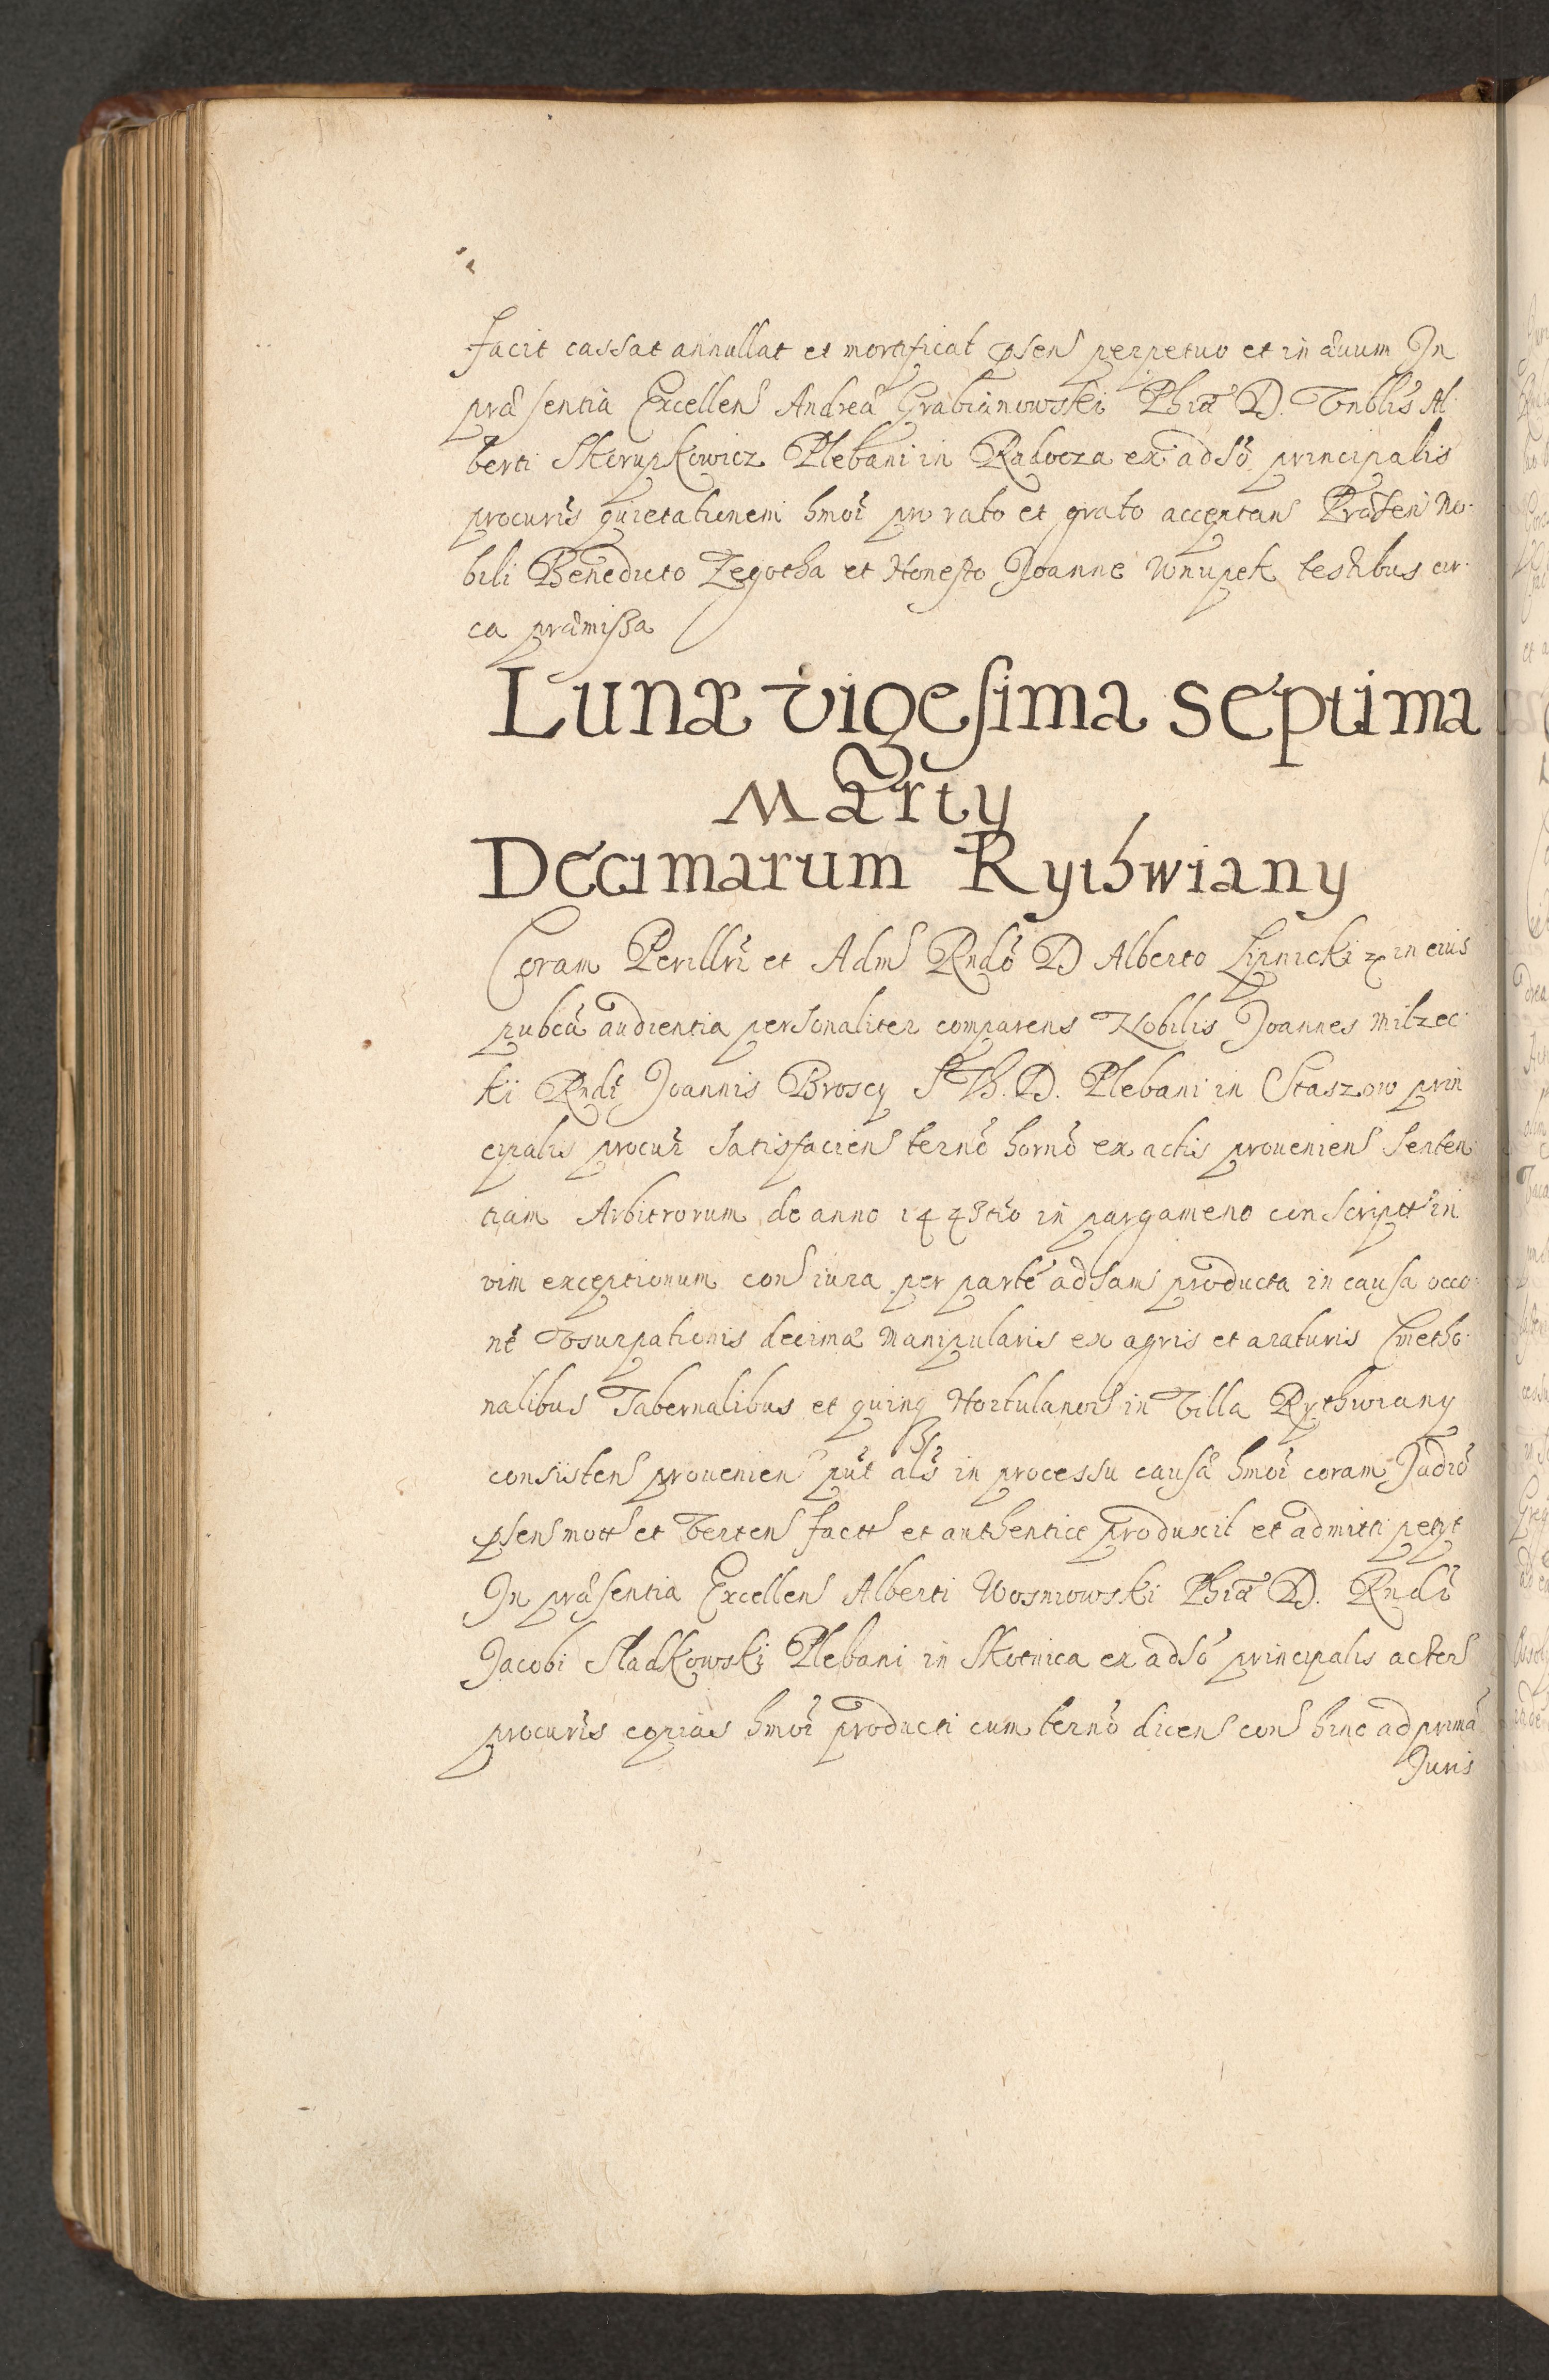 facit cassat annullat et mortificat psens perpetuo et in ævum In
præsentia Excellens Andreæ Grabianowski Phiæ D. Vnblis Al-
berti Skorupkowicz Plebani in Radocza ex adso principalis
procuris quietationem hmoi pro rato et grato acceptans Præsen No-
bili Benedicto Zegotha et Honesto Joanne Wnupek testibus cir-
ca præmissa
Lunæ vigesima septima
Marty
Decimarum Rythwiany
Coram Perillri et Adm Rndo D Alberto Lipnicki in eius
pubca audientia personaliter comparens Nobilis Joannes Milzec-
kii Rndi Joannis Broscy S Th. D. Plebani in Staszow prin
cipalis procur satisfaciens termo horno ex actis proueniens senten
tiam Arbitrorum de anno in pargameno conscript in
vim exceptionum cons iura per parte adsam producta in causa occo-
ne Vsurpationis decimæ manipularis ex agris et araturis Cmetho-
nalibus Tabernalibus et quinq Hortulanor in Villa Rythwiany
consistens prouenien put als in processu causæ hmoi coram Judio
psens mott et verten factt et authentice produxit et admitti petyt
In præsentia Excellens Alberti Wosniowski Phiæ D. Rndi
Jacobi Sladkowski Plebani in Skotnica ex adso principalis actens
procuris copias hmoi producti cum termo dicens cons hinc ad prima
Juris